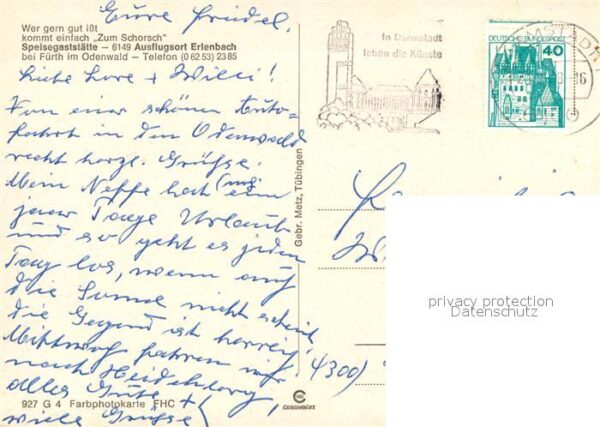 Eure Friedel.
Wer gern gut ißt
kommt einfach „Zum Schorsch"
Speisegaststätte – 6149 Ausflugsort Erlenbach
bei Fürth im Odenwald – Telefon (0 62 53) 23 85
Liebe Lore + Willi!
Von einer schönen Auto-
fahrt in den Odenwald
recht herzl. Grüsse.
Mein Neffe hat ein
paar Tage Urlaub
und so geht es jeden
Tag los, wenn auch
die Sonne nicht scheint
die Gegend ist herrlich,
Mittwoch fahren wir
nach Heidelberg,
alles Gute +
viele Grüsse
927 G 4 Farbphotokarte FHC
Gebr. Metz, Tübingen
CHROMOLUX
In Darmstadt
leben die Künste
DEUTSCHE BUNDESPOST
40
16
4300)
privacy protection
Datenschutz